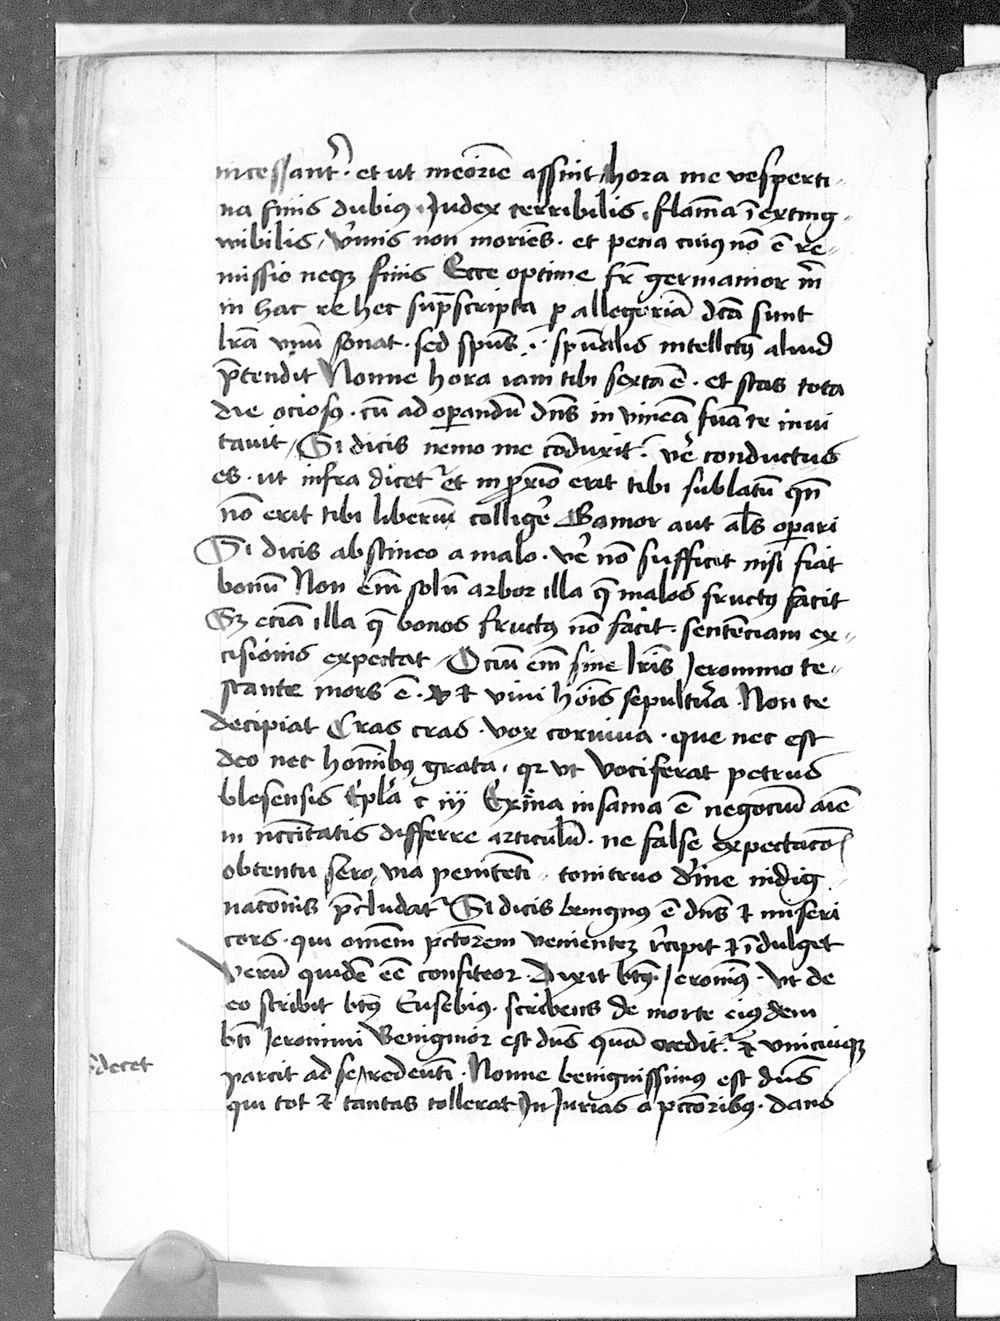 incessant᷑. et ut meōrie assint hora me vesperti-
na finis dubiꝰ. Judex terribilis. flam̄a īexting-
wibilis, v̓mis non morieñs. et pena cuiꝰ nō ē re-
missio neqꝫ finis Ecce optime fr̄ germanior m̄
in hac re hec sup̄scripta p allegoriā dc̄a sunt
lr̄a vnū sonat. sed spūs .i. spūalis intellectꝰ aliud
p̄tendit Nonne hora iam tibi sexta ē. et stas tota
die ociosꝰ. cū ad oꝑandū dn̄s in vineā suā te inui
tauit, Si dicis nemo me cōduxit. vē conductus
es. ut infra dicet᷑ et in ꝓxīo erit tibi sublatū qn̄
nō erit tibi liberum collige᷑ Bamor aut al̄s oꝑari
Si dicis abstineo a malo. vē nō sufficit nisi fiat
bonū Non em̄ solū arbor illa q̄ malos fructꝰ facit
Sꝫ eciā illa q̄ bonos fructꝰ nō facit. sentēciam ex-
cisionis expectat, Ociū em̄ sine lr̄is Jeronimo te-
stante mors ē. et viui hōis sepultura. Non te
decipiat Cras cras. vox coruina. que nec est
deo nec homībꝰ grata. qꝛ vt vociferat petrus
blesensis Epl̄a c iij Extrīa insania ē negociū aīe
in nccītatis differre articulū. ne false expectacōīs
obtentu sero, via penitēti tonitruo dīuine indig
nacōnis p̄cludat᷑ Si dicis benignꝰ ē dn̄s et miseri
cors. qui omēm pctōrem venientēꝫ rēcipit et īdulget
Verū quidē eē confiteor. Dixit btꝰ. Jeronimꝰ. Vt de
eo scribit btꝰ Eusebiꝰ. scribens de morte eiꝰdem
bti Jeronimi Benignior est dn̄s quā credit᷑. et vnicuiqꝫ
parcit ad se redeunti. Nonne benignissimꝰ est dn̄s
decet
qui tot et tantas tollerat Iniurias a pctōribꝰ. dans